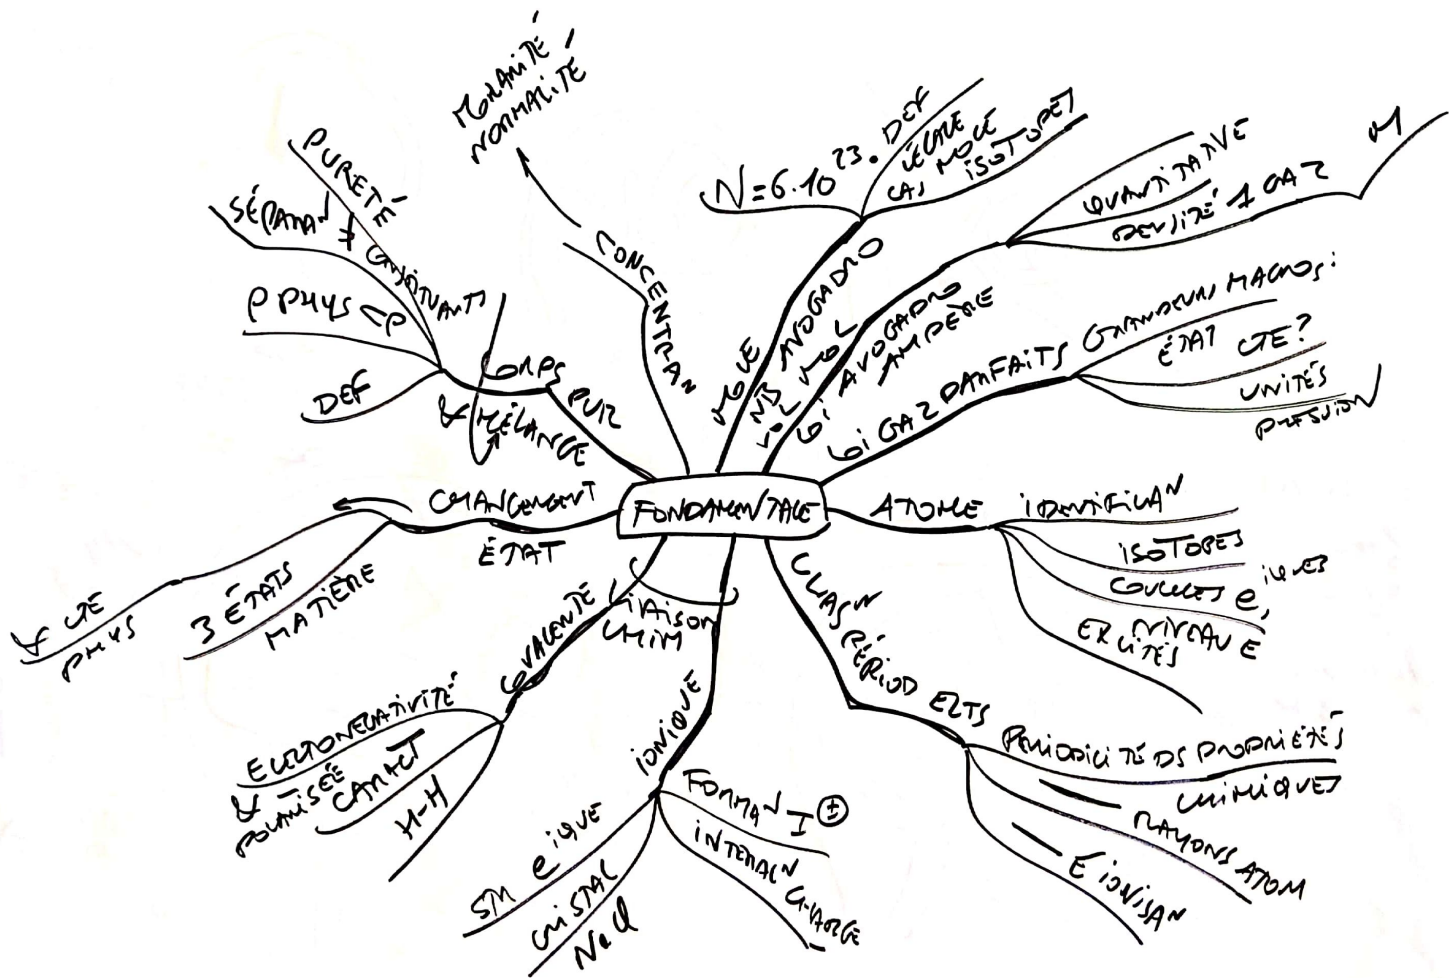 FONDAMENTALE
CONCENTRAN
MOLARITÉ
NORMALITÉ
MOLE
NB AVOGADRO
N=6.10^23.
DEF
LÉGALE
CAS MOLÉ
ISOTOPES
VOL MOL
Gi AVOGADRO
AMPÈRE
QUANTITATIVE
DENSITÉ 1 GAZ
M
Gi GAZ PARFAITS
GRANDEURS MACROS:
ÉTAT
CTE?
UNITÉS
PRESSION
ATOME
IDENTIFICAN
ISOTOPES
COUCHES e, iques
NIVEAU E
EXCITÉS
CLASN
PÉRIOD ELTS
PÉRIODICITÉ DS PROPRIÉTÉS
CHIMIQUES
— RAYONS ATOM
— E IONISAN
LIAISON
CHIM
IONIQUE
FORMAN I ±
INTERACN
CHARGE
SM e ique
CRISTAL
NaCl
COVALENTE
ELECTRONEGATIVITÉ
& POLARISÉE
CARACT
H-H
CHANGEMENT
ÉTAT
3 ÉTATS
MATIÈRE
& CTÉ
PHYS
CORPS PUR
& MÉLANGE
PURETÉ
SÉPARAN ≠ CONSTITUANTS
P PHYS CP
DEF